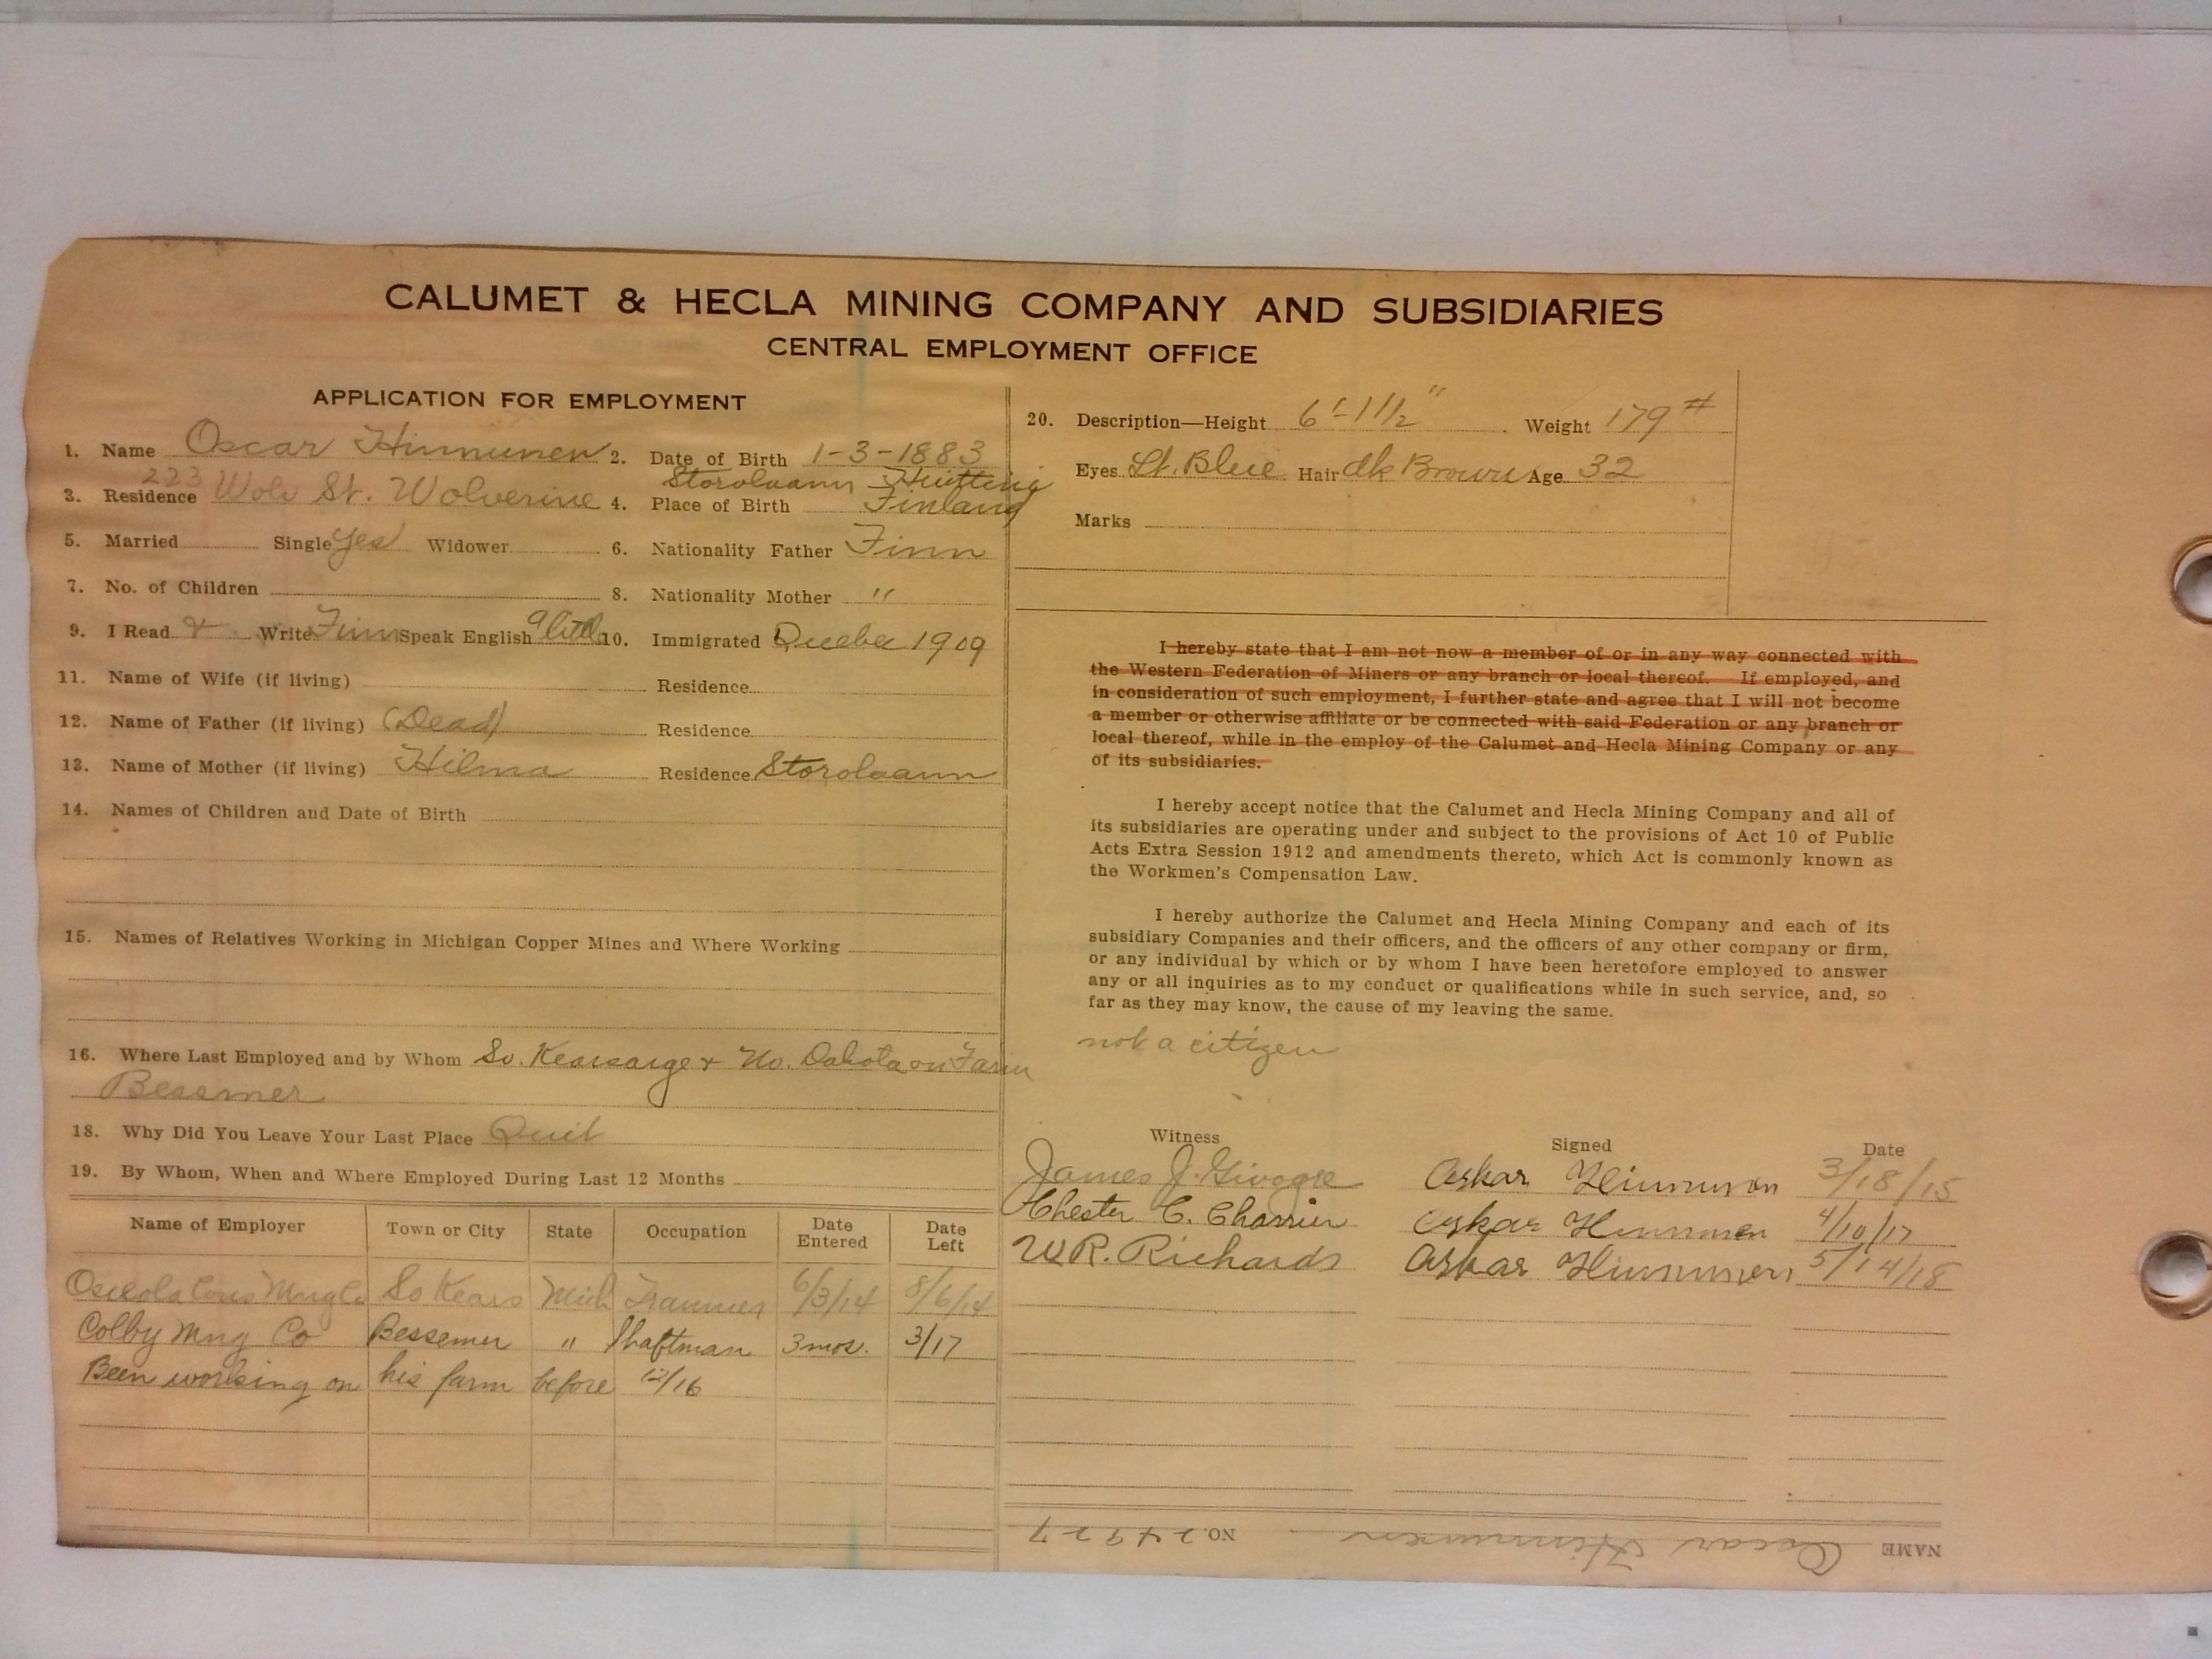 CALUMET & HECLA MINING COMPANY AND SUBSIDIARIES
CENTRAL EMPLOYMENT OFFICE
APPLICATION FOR EMPLOYMENT
1. Name Oscar Hinnunen 2. Date of Birth 1-3-1883
223 Storolaann
3. Residence Wolv St. Wolverine 4. Place of Birth Finland
5. Married Single Yes Widower 6. Nationality Father Finn
7. No. of Children 8. Nationality Mother "
9. I Read & Write Finn Speak English a little 10. Immigrated Quebec 1909
11. Name of Wife (if living) Residence
12. Name of Father (if living) (Dead) Residence
13. Name of Mother (if living) Hilma Residence Storolaann
14. Names of Children and Date of Birth
15. Names of Relatives Working in Michigan Copper Mines and Where Working
16. Where Last Employed and by Whom So. Kearsarge & No. Dakota on Farm
Bessmer
18. Why Did You Leave Your Last Place Quit
19. By Whom, When and Where Employed During Last 12 Months
Name of Employer Town or City State Occupation Date Entered Date Left
Osceola Cons Mng Co So Kears Mich Trammer 6/3/14 8/6/14
Colby Mng Co Bessemer " Shaftman 3 mos. 3/17
Been working on his farm before 12/16
20. Description—Height 6'-1 1/2" Weight 179#
Eyes Lt. Blue Hair dk Brown Age 32
Marks
I hereby state that I am not now a member of or in any way connected with
the Western Federation of Miners or any branch or local thereof. If employed, and
in consideration of such employment, I further state and agree that I will not become
a member or otherwise affiliate or be connected with said Federation or any branch or
local thereof, while in the employ of the Calumet and Hecla Mining Company or any
of its subsidiaries.
I hereby accept notice that the Calumet and Hecla Mining Company and all of
its subsidiaries are operating under and subject to the provisions of Act 10 of Public
Acts Extra Session 1912 and amendments thereto, which Act is commonly known as
the Workmen's Compensation Law.
I hereby authorize the Calumet and Hecla Mining Company and each of its
subsidiary Companies and their officers, and the officers of any other company or firm,
or any individual by which or by whom I have been heretofore employed to answer
any or all inquiries as to my conduct or qualifications while in such service, and, so
far as they may know, the cause of my leaving the same.
not a citizen
Witness Signed Date
James J. Oskar Hinnunen 3/18/15
Chester C. Oskar Hinnunen 4/10/17
W.R. Richards Oskar Hinnunen 5/14/18
NAME Oscar Hinnunen NO. 24927